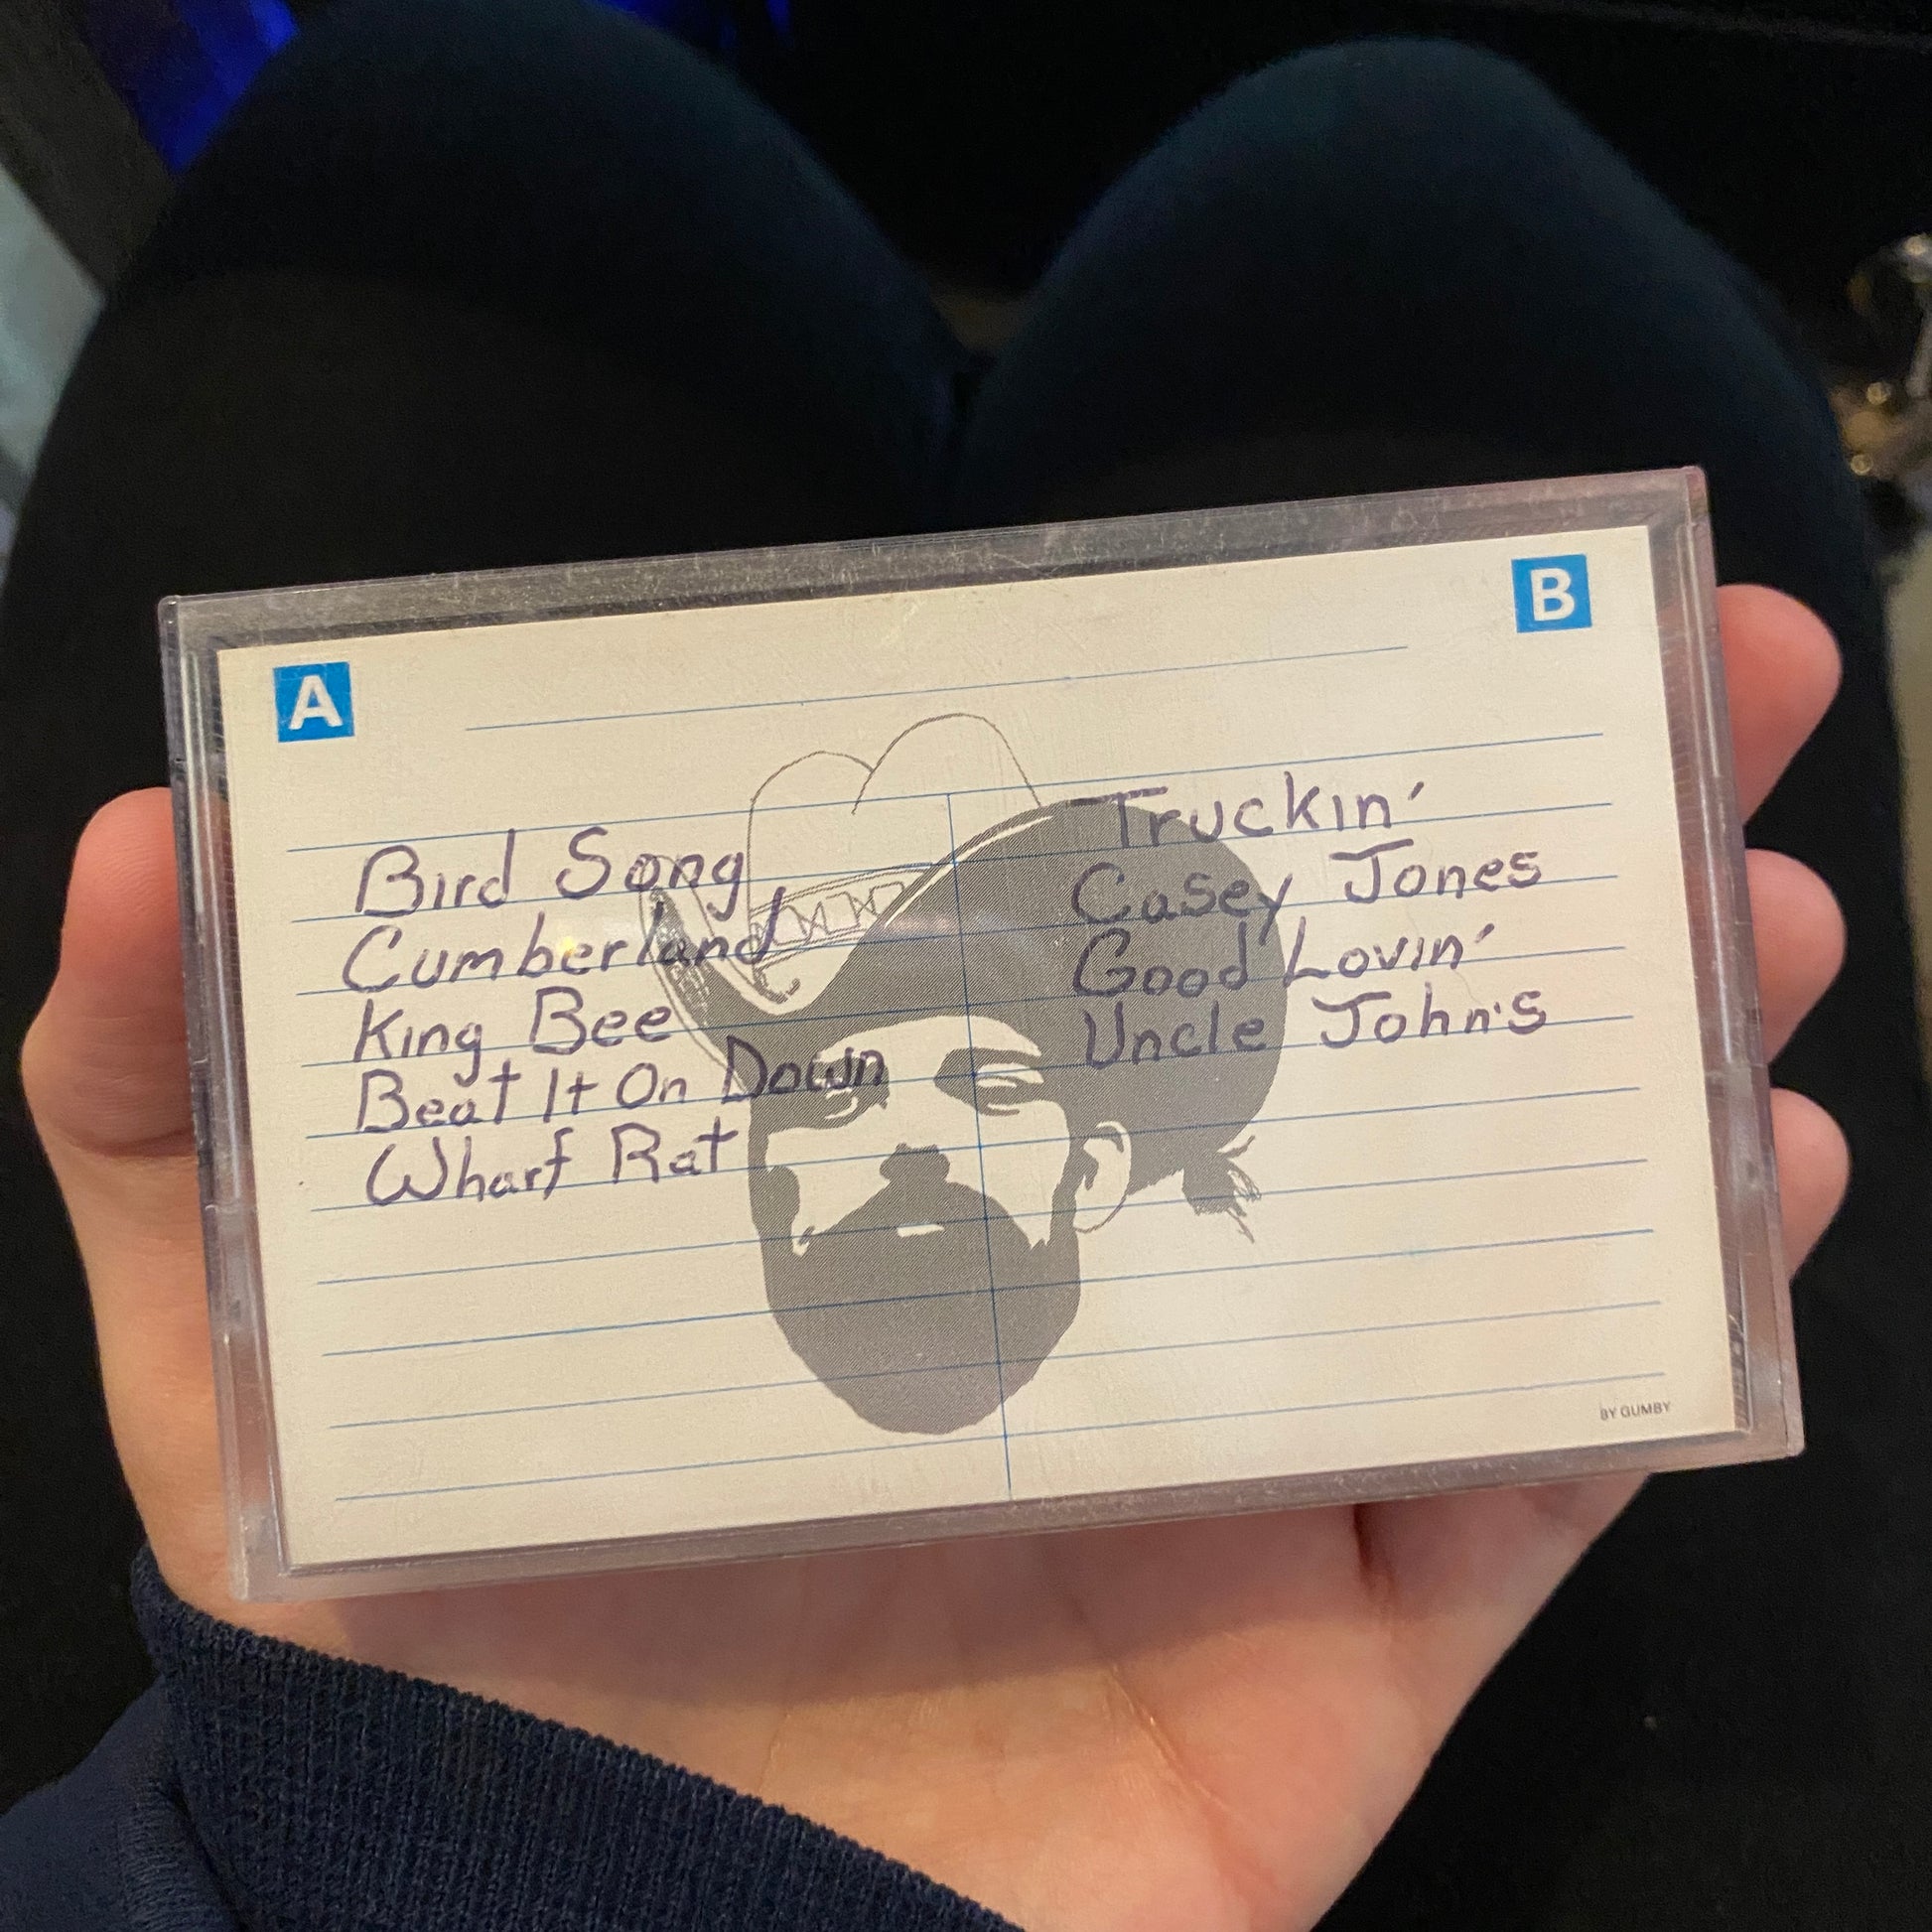 A
B
Bird Song
Cumberland
King Bee
Beat It On Down
Wharf Rat
Truckin'
Casey Jones
Good Lovin'
Uncle John's
BY GUMBY